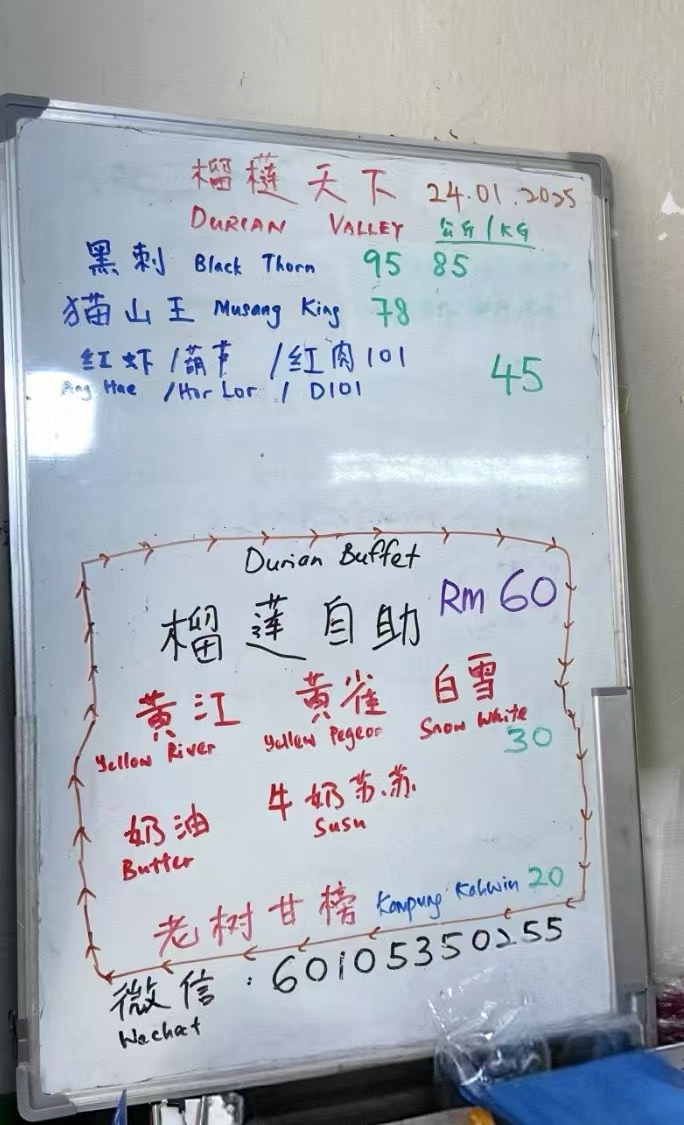 榴梿天下 24.01.2025
DURIAN VALLEY 公斤/KG
黑刺 Black Thorn 95 85
猫山王 Musang King 78
红虾/葫芦/红肉101
Ang Hae /Hor Lor / D101 45
Durian Buffet
榴莲自助 RM 60
黄江 黄雀 白雪
Yellow River Yellow Pegeor Snow White
30
奶油 牛奶苏苏
Butter Susu
老树甘榜 Kampung Kahwin 20
微信:60105350255
Wechat